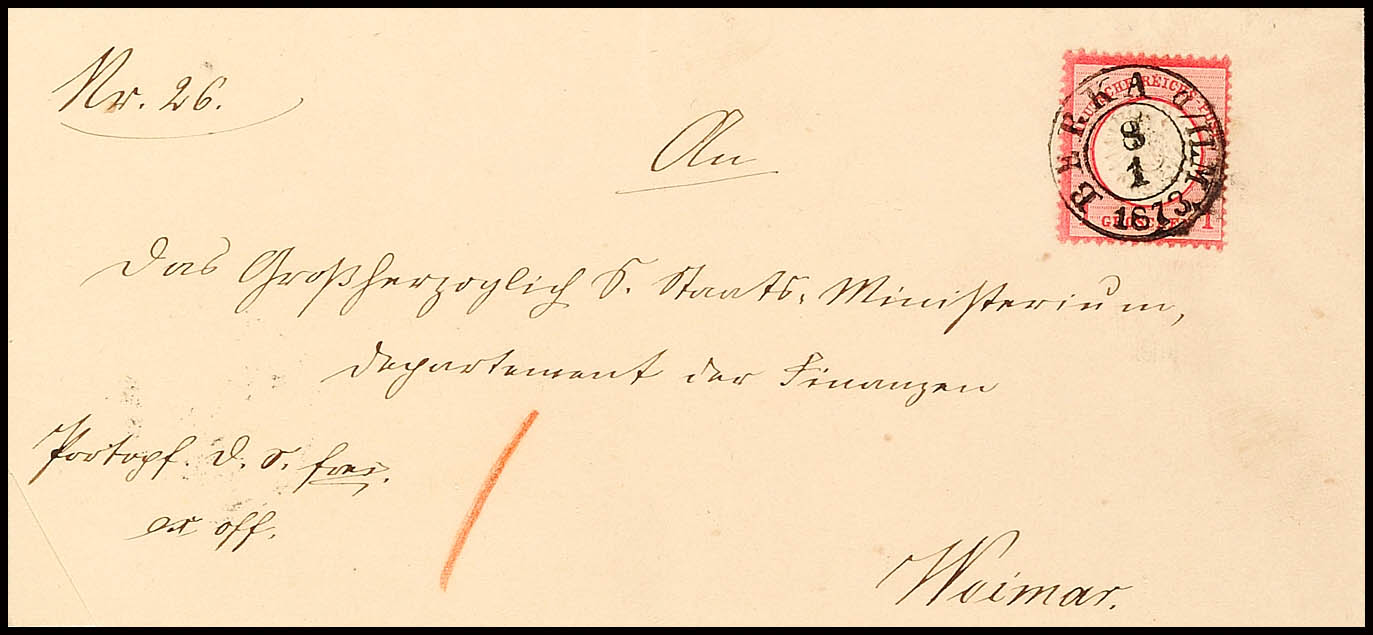 Nr. 26.
BERKA a/ILM
DEUTSCHE REICHS-POST
8
1
1873
GROSCHEN 1
An
das Großherzoglich S. Staats-Ministerium,
Departement der Finanzen
Portopf. D. S. frei.
ex off.
Weimar.